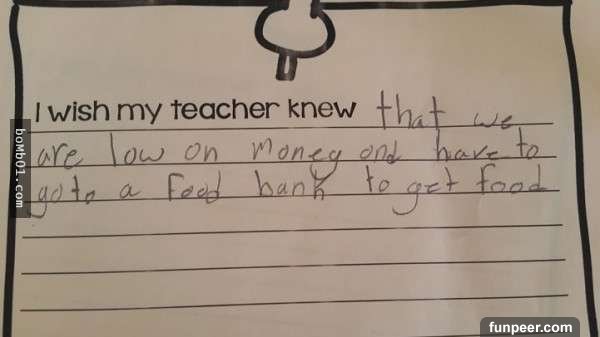 I wish my teacher knew that we
are low on money and have to
go to a food bank to get food
bomb01.com
funpeer.com